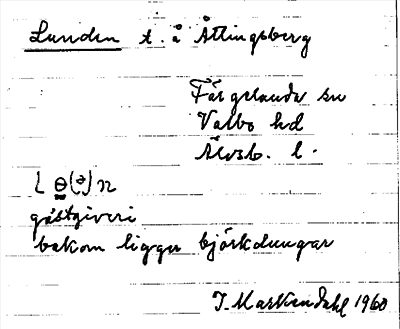 Lunden t. å Ättingsberg
Färgelanda sn
Valbo hd
Älvsb. l.
l ɵ(ə)n
gästgiveri
bakom ligger björkdungar
J. Markendahl 1960